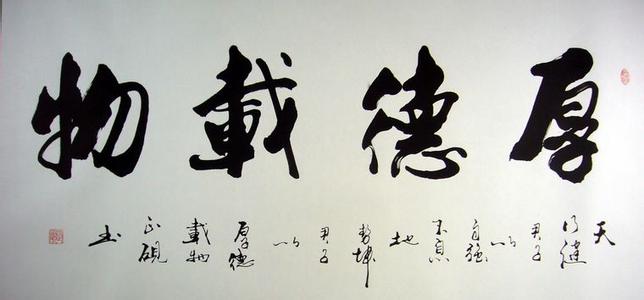 厚德載物
天行健君子以自強不息地勢坤君子以厚德載物
正硯书